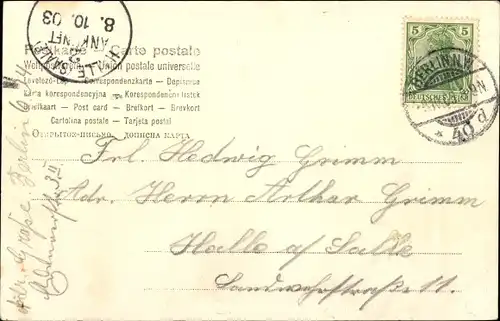 Postkarte — Carte postale
Weltpostverein — Union postale universelle
Levelező-Lap — Correspondenzkarte — Dopisnice
Karta korespondencyjna — Korespondenční lístek
Briefkaart — Post card — Brefkort — Brevkort
Cartolina postale — Tarjeta postal
Открытое письмо
HALLE (SAALE)
ANKUNFT
8. 10. 03
5 5
DEUTSCHES REICH
BERLIN N.
* 40 d
Frl. Hedwig Grimm
Adr. Herrn Arthur Grimm
Halle a/ Salle
Landwehrstraße 11.
Adr. Grape Berlin